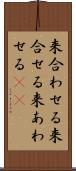 来合わせる来
合せる来あわ
せる